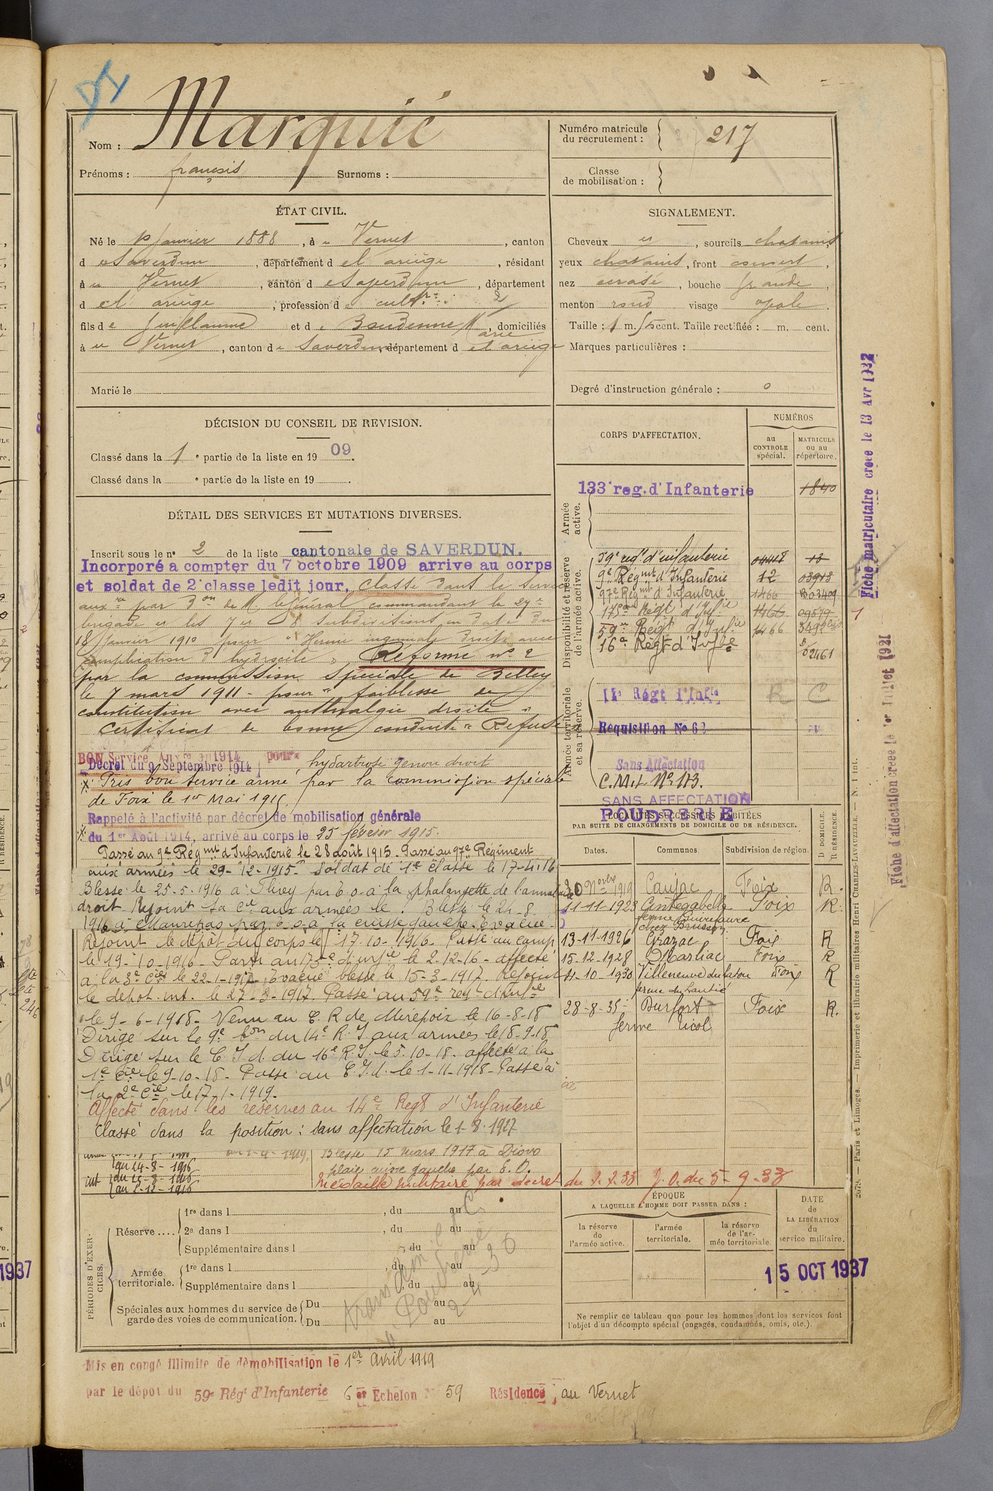 Nom : Marquié
Prénoms : françois Surnoms :
Numéro matricule du recrutement : 217
Classe de mobilisation :
ÉTAT CIVIL.
Né le 10 janvier 1888, à u Vernet, canton
d e Saverdun, département d el ariège, résidant
à u Vernet, canton d e Saverdun, département
d el ariège, profession d e cultr
fils d e Guillaume et d e Baudenne Marie, domiciliés
à u Vernet, canton d e Saverdun, département d el ariège
Marié le
SIGNALEMENT.
Cheveux et, sourcils chatains
yeux chatains, front couvert,
nez, bouche grande,
menton rond visage ovale.
Taille : 1 m. cent. Taille rectifiée : m. cent.
Marques particulières :
Degré d'instruction générale : 0
DÉCISION DU CONSEIL DE REVISION.
Classé dans la 1 e partie de la liste en 1909.
Classé dans la e partie de la liste en 19
DÉTAIL DES SERVICES ET MUTATIONS DIVERSES.
Inscrit sous le n° 2 de la liste cantonale de SAVERDUN.
Incorporé a compter du 7 octobre 1909 arrive au corps
et soldat de 2e classe ledit jour, classé dans le service
auxre par Don de M. le Général commandant la
brigade et les Subdivisions en date du
18 janvier 1910 pour " Hernie inguinale droite avec
complication d'hydrocèle ". Réformé n° 2
par la commission spéciale de Belley
le 7 mars 1911 - pour " faiblesse de
constitution avec droite "
Certificat de bonne conduite " Refusé "
Décret du 9 Septembre 1914 pour hydartrose genou droit
Pris bon service armé par la Commission spéciale
de Foix le 1er Mai 1915.
Rappelé à l'activité par décret de mobilisation générale
du 1er Août 1914, arrivé au corps le 25 février 1915.
Passé au 9e Régmt d'Infanterie le 28 août 1915. Passé au 97e Régiment
aux armées le 29-12-1915. Soldat de 1e Classe le 17-4-16
Blessé le 25-5-1916 à par é.o. à la phalangette de l'annulaire
droit. Rejoint sa Cie aux armées le. Blessé le 24-8
1916 à Maurepas par é.o. à la cuisse gauche. Évacué
Rejoint le dépôt du corps le 17-10-1916. Passé au camp
le 19-10-1916. Passé au 175e d'infie le 2-12-16 - affecté
à la 3e Cie le 22-1-1917 Évacué blessé le 15-3-1917. Rejoint
le dépôt int. le 27-8-1917. Passé au 59e rég. d'Infie
le 9-6-1918. Venu au C.R de Mirepoix le 16-8-18
Dirigé sur le 9e Bon du 14e R.I aux armées le 18-9-18
Dirigé sur le C.I.d du 16e R.I. le 5-10-18. affecté à la
1e Cie le 9-10-18. Passé au C.I.d. le 1-11-1918. Passé à
la 2e Cie le 17-1-1919.
Affecté dans les réserves au 14e Regt d'Infanterie
Classé dans la position : sans affectation le 1-8-1927
Blessé 15 mars 1917 à
plaie cuisse gauche par E.O.
Médaille militaire par décret du 2.9.33 J.O. du 5-9-33
CORPS D'AFFECTATION.
NUMÉROS
au CONTROLE spécial.
MATRICULE ou au répertoire.
Armée active.
133e reg. d'Infanterie 1840
Disponibilité et réserve de l'armée active.
59e régt d'infanterie 18
9e Régmt d'Infanterie 12 03918
97e Régmt d'Infanterie 1466
175e Régt d'Infie 1466
59e Régt d'Infie 1466
16e Régt d'Infie 02461
Armée territoriale et sa réserve.
14e Régt d'Infie R C
Réquisition No 62
Sans Affectation
C.M.t. N° 173.
SANS AFFECTATION
POUDRERIE
LOCALITÉS SUCCESSIVES HABITÉES
PAR SUITE DE CHANGEMENTS DE DOMICILE OU DE RÉSIDENCE.
Dates. Communes Subdivision de région. D DOMICILE. R RÉSIDENCE.
30 Nbre 1919 Caujac Foix R.
11-11-1923 Cintegabelle Foix R.
13-11-1926 Grazac Foix R
15-12-1928 Foix R
11-10-1930 Villeneuve du Latou Foix R
28-8-35 Durfort Foix R.
ferme
PÉRIODES D'EXERCICES.
Réserve....
1re dans l , du au
2e dans l , du au
Supplémentaire dans l , du au
Armée territoriale.
1re dans l , du au
Supplémentaire dans l , du au
Spéciales aux hommes du service de garde des voies de communication.
Du au
Du au
ÉPOQUE
A LAQUELLE L'HOMME DOIT PASSER DANS :
la réserve de l'armée active.
l'armée territoriale.
la réserve de l'armée territoriale
DATE DE LA LIBÉRATION du service militaire.
15 OCT 1937
Ne remplir ce tableau que pour les hommes dont les services font l'objet d'un décompte spécial (engagés, condamnés, omis, etc.).
Mis en congé illimité de démobilisation le 1er avril 1919
par le dépôt du 59e Régt d'Infanterie 6e Echelon N° 59 Résidence : au Vernet
Fiche matriculaire créée le 13 Avr 1932
Fiche d'affectation créée le 1er Juillet 1921
Paris et Limoges. — Imprimerie et librairie militaires Henri CHARLES-LAVAUZELLE.
1937